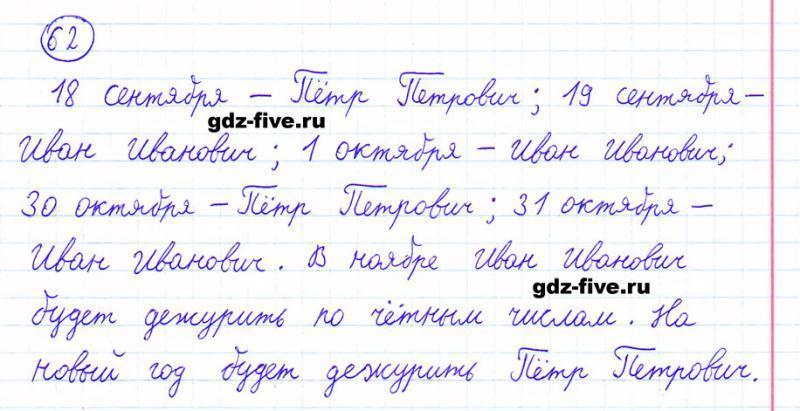 62
18 сентября – Пётр Петрович; 19 сентября –
gdz-five.ru
Иван Иванович; 1 октября – Иван Иванович;
30 октября – Пётр Петрович; 31 октября –
Иван Иванович. В ноябре Иван Иванович
gdz-five.ru
будет дежурить по чётным числам. На
новый год будет дежурить Пётр Петрович.